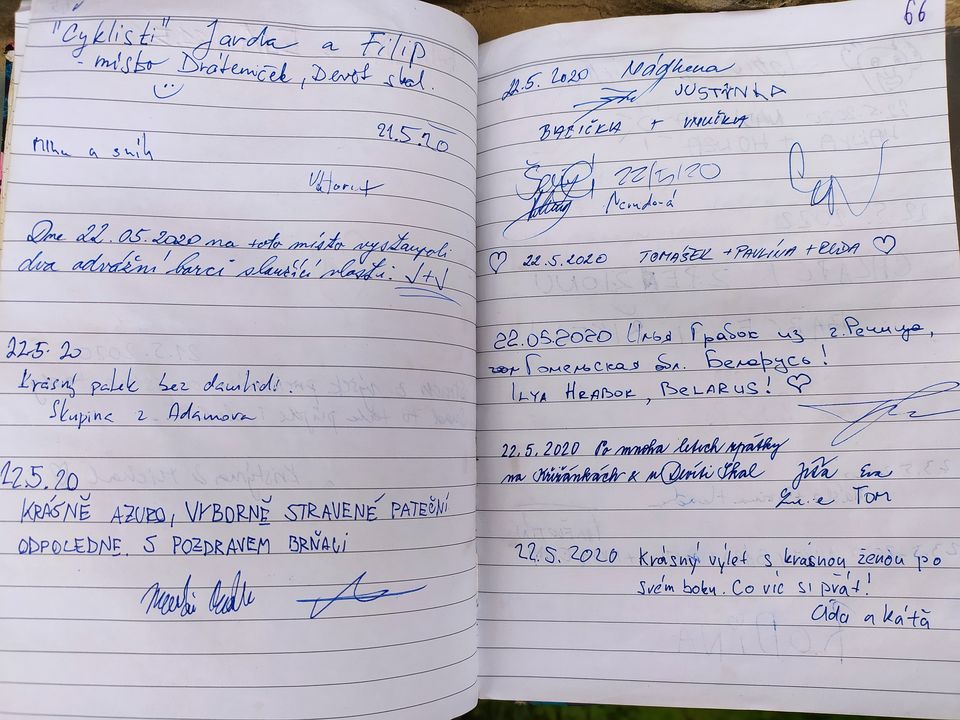 "Cyklisti" Jarda a Filip
- místo Dráteniček, Devět skal.
21.5.20
Mlha a sníh
Dne 22.05.2020 na toto místo vystoupali
dva odvážní borci sloužící vlasti: J+J
22.5.20
Krásný pátek bez
Skupina z Adamova
22.5.20
KRÁSNĚ AZURO, VÝBORNĚ STRAVENÉ PÁTEČNÍ
ODPOLEDNE. S POZDRAVEM BRŇÁCI
66
22.5.2020 Nádhera
JUSTÝNKA
BABIČKA + VNUČKA
22/5/20
♡ 22.5.2020 TOMÁŠEK + PAVLÍNA + RÚDA ♡
22.05.2020 Илья Грабок из г. Речица,
Гомельская бл. Беларусь!
ILYA HRABOK, BELARUS! ♡
22.5.2020 Po mnoha letech zpátky
na Křižánkách & u Devíti Skal Jiřa Eva
TOM
22.5.2020 Krásný výlet s krásnou ženou po
svém boku. Co víc si přát!
Áďa a Káťa